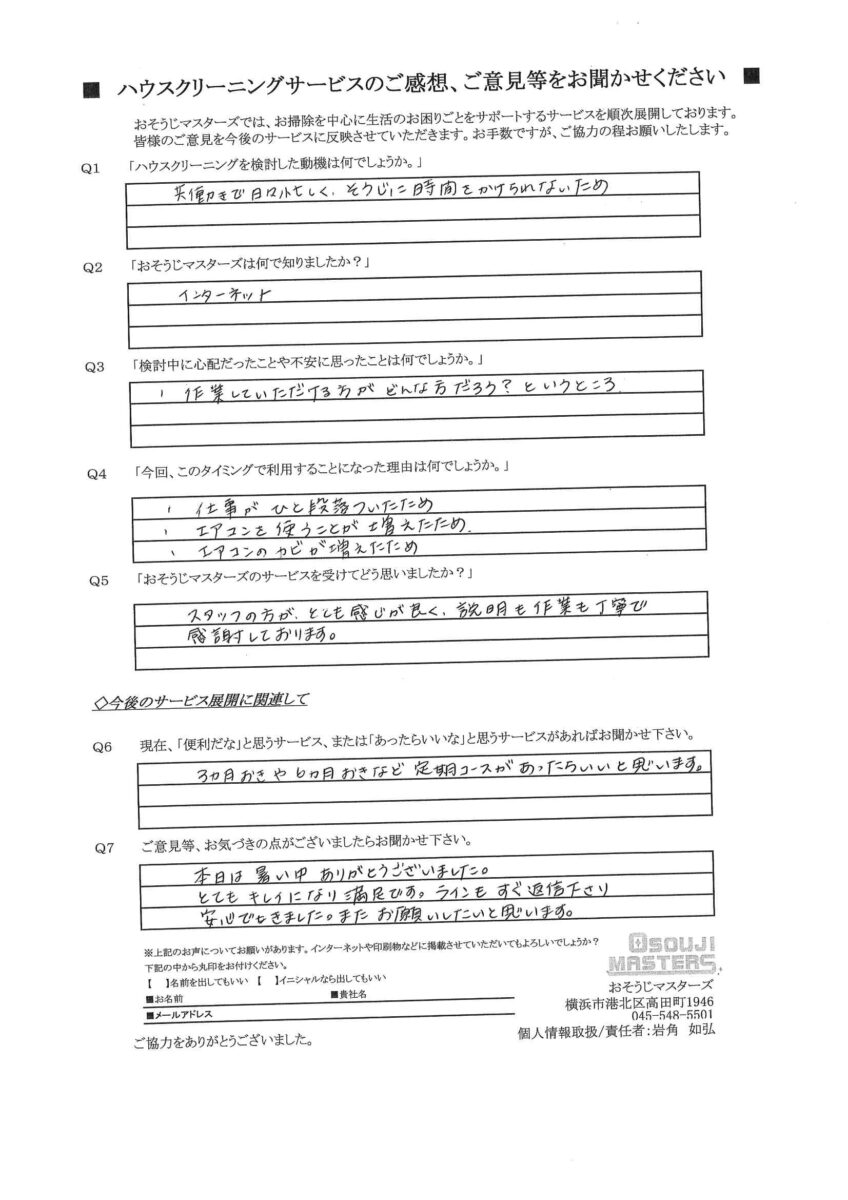 ■ ハウスクリーニングサービスのご感想、ご意見等をお聞かせください ■
おそうじマスターズでは、お掃除を中心に生活のお困りごとをサポートするサービスを順次展開しております。
皆様のご意見を今後のサービスに反映させていただきます。お手数ですが、ご協力の程お願いしたします。
Q1 「ハウスクリーニングを検討した動機は何でしょうか。」
共働きで日々忙しく、そうじに時間をかけられないため
Q2 「おそうじマスターズは何で知りましたか？」
インターネット
Q3 「検討中に心配だったことや不安に思ったことは何でしょうか。」
、作業していただける方がどんな方だろう？というところ
Q4 「今回、このタイミングで利用することになった理由は何でしょうか。」
、仕事がひと段落ついたため
、エアコンを使うことが増えたため
、エアコンのカビが増えたため
Q5 「おそうじマスターズのサービスを受けてどう思いましたか？」
スタッフの方が、とても感じが良く、説明も作業も丁寧で
感謝しております。
◇今後のサービス展開に関連して
Q6 現在、「便利だな」と思うサービス、または「あったらいいな」と思うサービスがあればお聞かせ下さい。
3カ月おきや6カ月おきなど定期コースがあったらいいと思います。
Q7 ご意見等、お気づきの点がございましたらお聞かせ下さい。
本日は暑い中ありがとうございました。
とてもキレイになり満足です。ラインもすぐ返信下さり
安心できました。またお願いしたいと思います。
※上記のお声についてお願いがあります。インターネットや印刷物などに掲載させていただいてもよろしいでしょうか？
下記の中から丸印をお付けください。
【 】名前を出してもいい 【 】イニシャルなら出してもいい
■お名前 ■貴社名
■メールアドレス
ご協力をありがとうございました。
OSOUJI
MASTERS
おそうじマスターズ
横浜市港北区高田町1946
045-548-5501
個人情報取扱/責任者:岩角 如弘